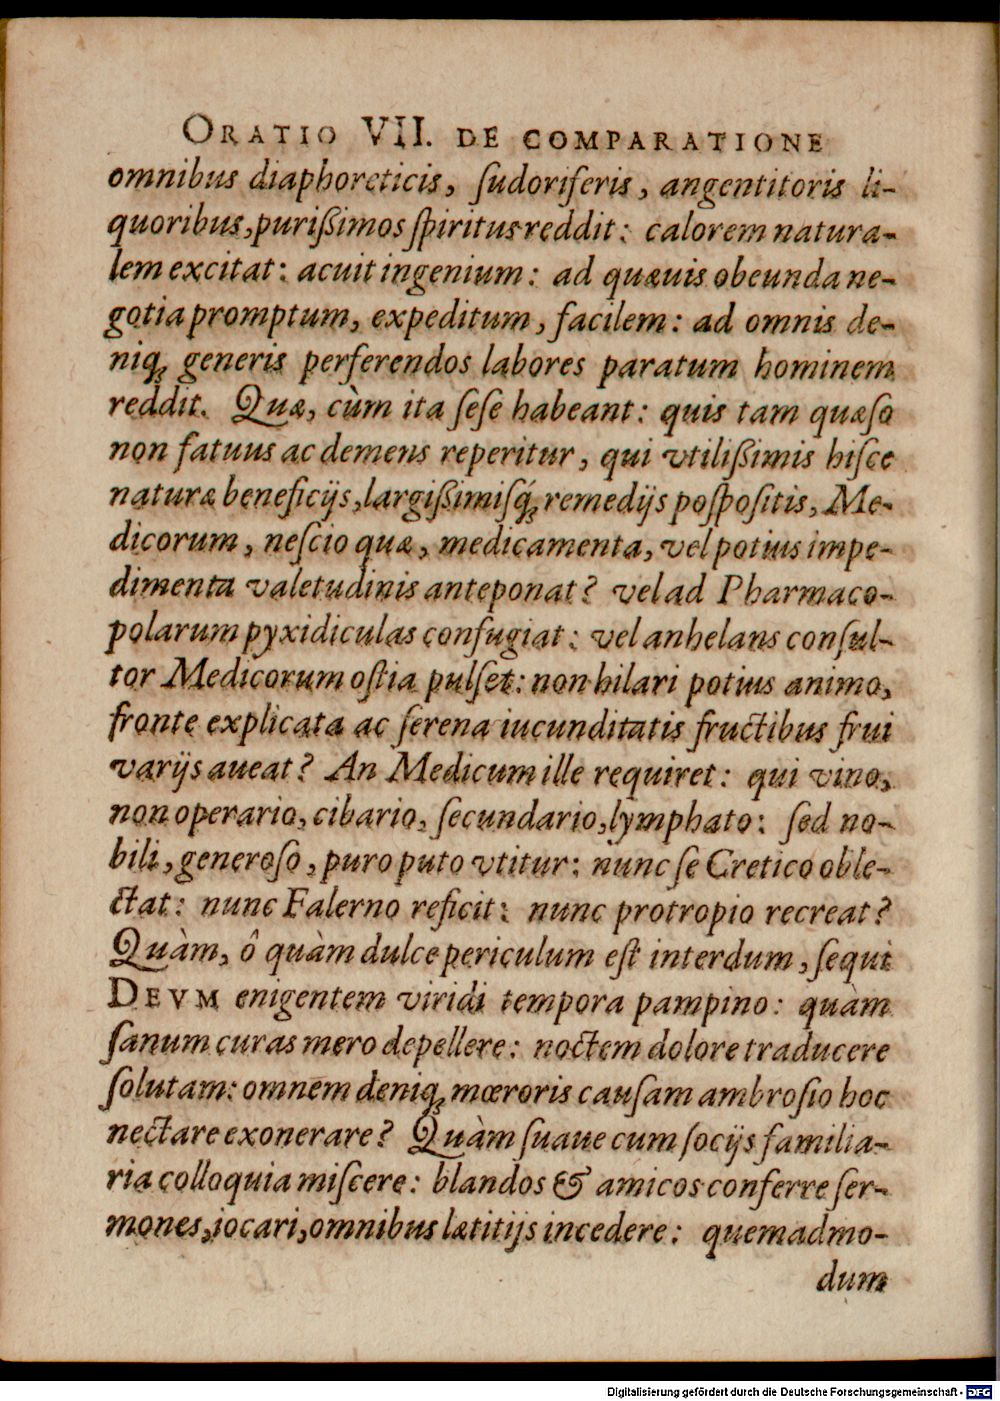 ORATIO VII. DE COMPARATIONE
omnibus diaphoreticis, ſudoriferis, angentitoris li-
quoribus, purißimos ſpiritus reddit: calorem natura-
lem excitat: acuit ingenium: ad quæuis obeunda ne-
gotia promptum, expeditum, facilem: ad omnis de-
niq́ꝫ generis perferendos labores paratum hominem
reddit. Quæ, cùm ita ſeſe habeant: quis tam quæſo
non fatuus ac demens reperitur, qui vtilißimis hiſce
naturæ beneficijs, largißimiſq́ꝫ remedijs poſpoſitis, Me-
dicorum, neſcio quæ, medicamenta, vel potius impe-
dimenta valetudinis anteponat? vel ad Pharmaco-
polarum pyxidiculas confugiat: vel anhelans conſul-
tor Medicorum oſtia pulſet: non hilari potius animo,
fronte explicata ac ſerena iucunditatis fructibus frui
varijs aueat? An Medicum ille requiret: qui vino,
non operario, cibario, ſecundario, lymphato: ſed no-
bili, generoſo, puro puto vtitur: nunc ſe Cretico oble-
ctat: nunc Falerno reficit: nunc protropio recreat?
Quàm, ô quàm dulce periculum eſt interdum, ſequi
DEVM enigentem viridi tempora pampino: quàm
ſanum curas mero depellere: noctem dolore traducere
ſolutam: omnem deniqꝫ mœroris cauſam ambroſio hoc
nectare exonerare? Quàm ſuaue cum ſocijs familia-
ria colloquia miſcere: blandos & amicos conferre ſer-
mones, iocari, omnibus lætitijs incedere: quemadmo-
dum
Digitalisierung gefördert durch die Deutsche Forschungsgemeinschaft - DFG